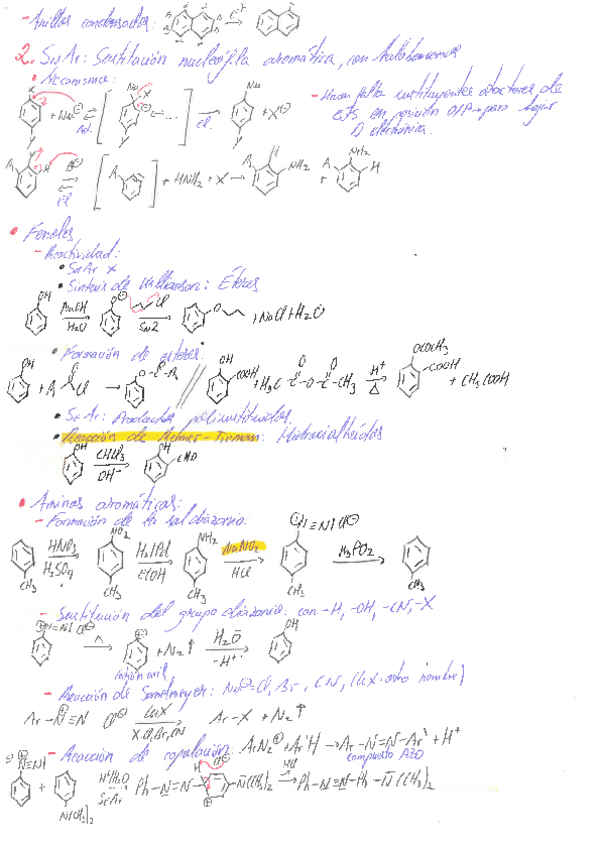 - Anillos condensados: E⁺
2. SNAr: Sustitución nucleófila aromática, con halobencenos
• Mecanismo:
+ Nu⊖ Ad. El. + X⊖
- Hacen falta sustituyentes atractores de
e⁻s en posición O/P → para bajar
D electrónica.
A B⊖ El + HNH₂ + X → A H NH₂ + A NH₂ H
• Fenoles
- Reactividad:
• SNAr X
• Síntesis de Williamson: Éteres
OH NaOH H₂O O⊖ Cl SN2 O + NaCl + H₂O
• Formación de ésteres:
OH + R Cl → O-C-R // OH COOH + H₃C-C-O-C-CH₃ H⁺ Δ OCOCH₃ COOH + CH₃COOH
• SEAr: Productos polisustituidos.
• Reacción de Reimer-Tiemann: Hidroxialdehídos
OH CHCl₃ OH⁻ OH CHO
• Aminas aromáticas:
- Formación de la sal diazonio.
CH₃ HNO₃ H₂SO₄ NO₂ CH₃ H₂/Pd EtOH NH₂ CH₃ NaNO₂ HCl ⊕N≡N| Cl⊖ CH₃ H₃PO₂ CH₃
- Sustitución del grupo diazonio: con -H, -OH, -CN, -X
⊕N≡N| Cl⊖ Δ ⊕ + N₂↑ H₂O -H⁺ OH
catión aril
- Reacción de Sandmeyer: Nu = Cl, Br, CN, (CuX: otro nombre)
Ar-N≡N Cl⊖ CuX X: Cl, Br, CN Ar-X + N₂↑
- Reacción de copulación: ArN₂⊕ + Ar'H → Ar-N=N-Ar' + H⁺
compuesto AZO
⊕N≡N| + N(CH₃)₂ H⁺/H₂O SEAr Ph-N=N- H Cl⊖ N(CH₃)₂ HCl Ph-N=N-Ph-N(CH₃)₂